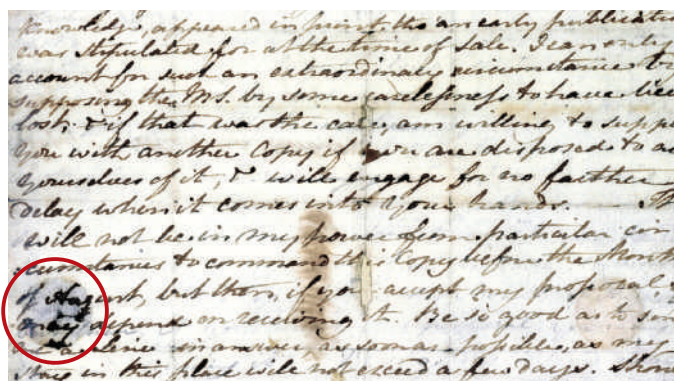 knowledge, appeared in print, tho an early publicatio
was stipulated for at the time of Sale. I can only
account for such an extraordinary circumstance by
supposing the MS. by some carelessness to have been
lost; & if that was the case, am willing to supply
you with another Copy if you are disposed to av
yourselves of it, & will engage for no farther
delay when it comes into your hands. — It
will not be in my power from particular cir
cumstances to command this Copy before the Month
of August, but then, if you accept my proposal, y
may depend on receiving it. Be so good as to sen
me a Line in answer, as soon as possible, as my
stay in this place will not exceed a few days. Shou